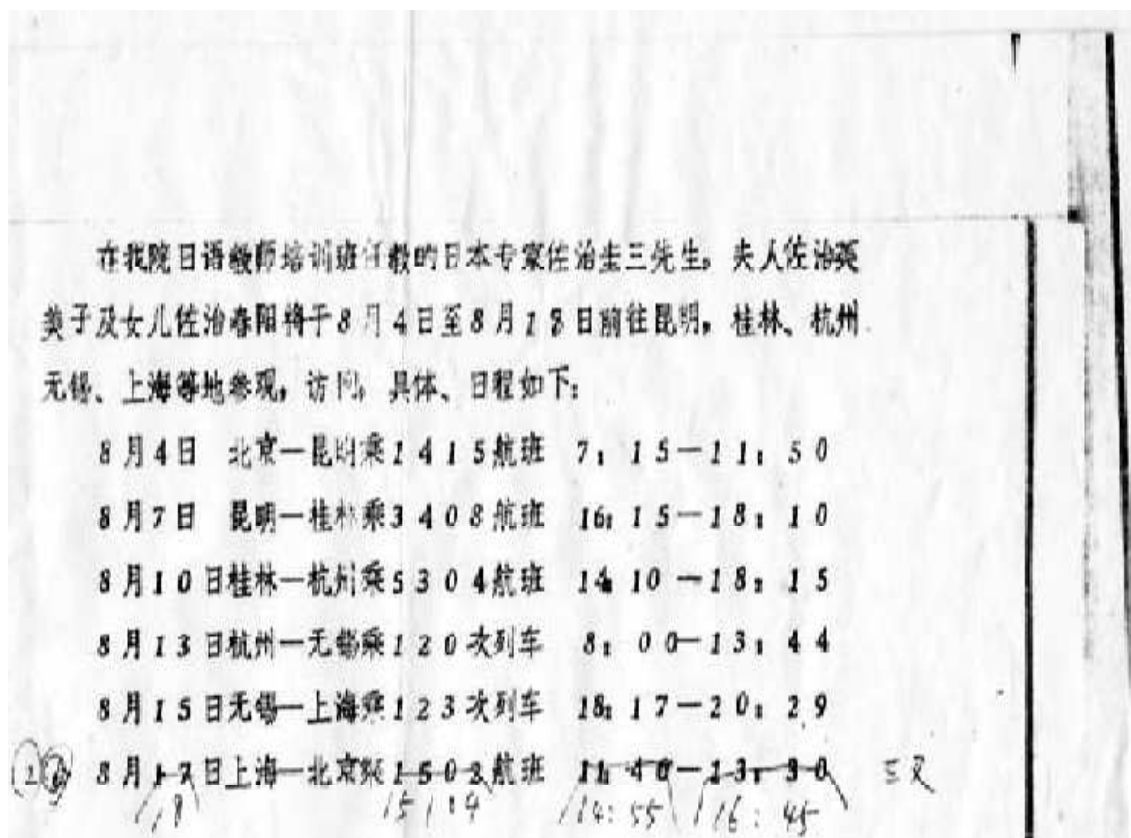 在我院日语教师培训班任教的日本专家佐治圭三先生，夫人佐治英
美子及女儿佐治春阳将于8月4日至8月18日前往昆明，桂林、杭州
无锡、上海等地参观，访问，具体、日程如下：
8月4日 北京—昆明乘1415航班 7：15—11：50
8月7日 昆明—桂林乘3408航班 16：15—18：10
8月10日桂林—杭州乘5304航班 14：10—18：15
8月13日杭州—无锡乘120次列车 8：00—13：44
8月15日无锡—上海乘123次列车 18：17—20：29
8月17日上海—北京乘1502航班 11：40—13：30
18 14：55 16：45